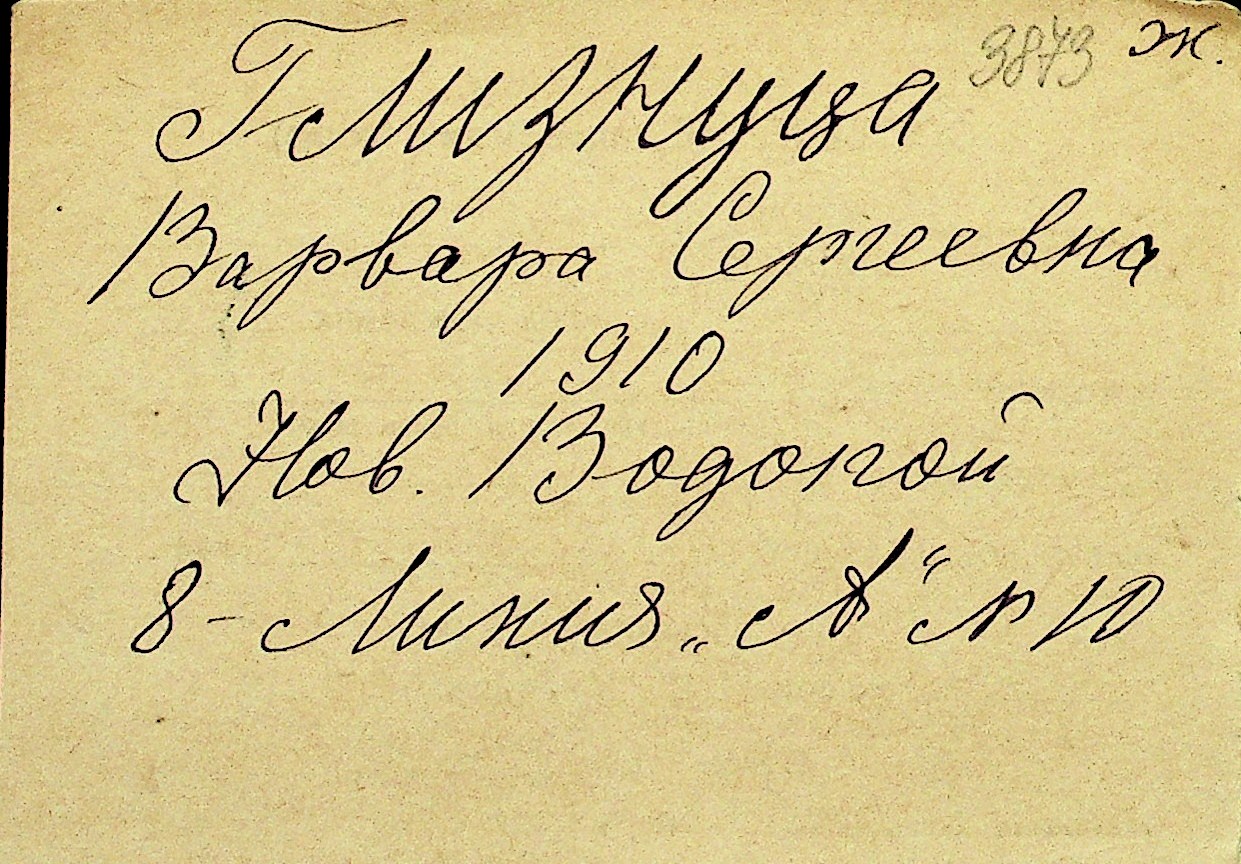 3873 ж.
Глизнуца
Варвара Сергеевна
1910
Нов. Водопой
8 - Линия „А“ № 10